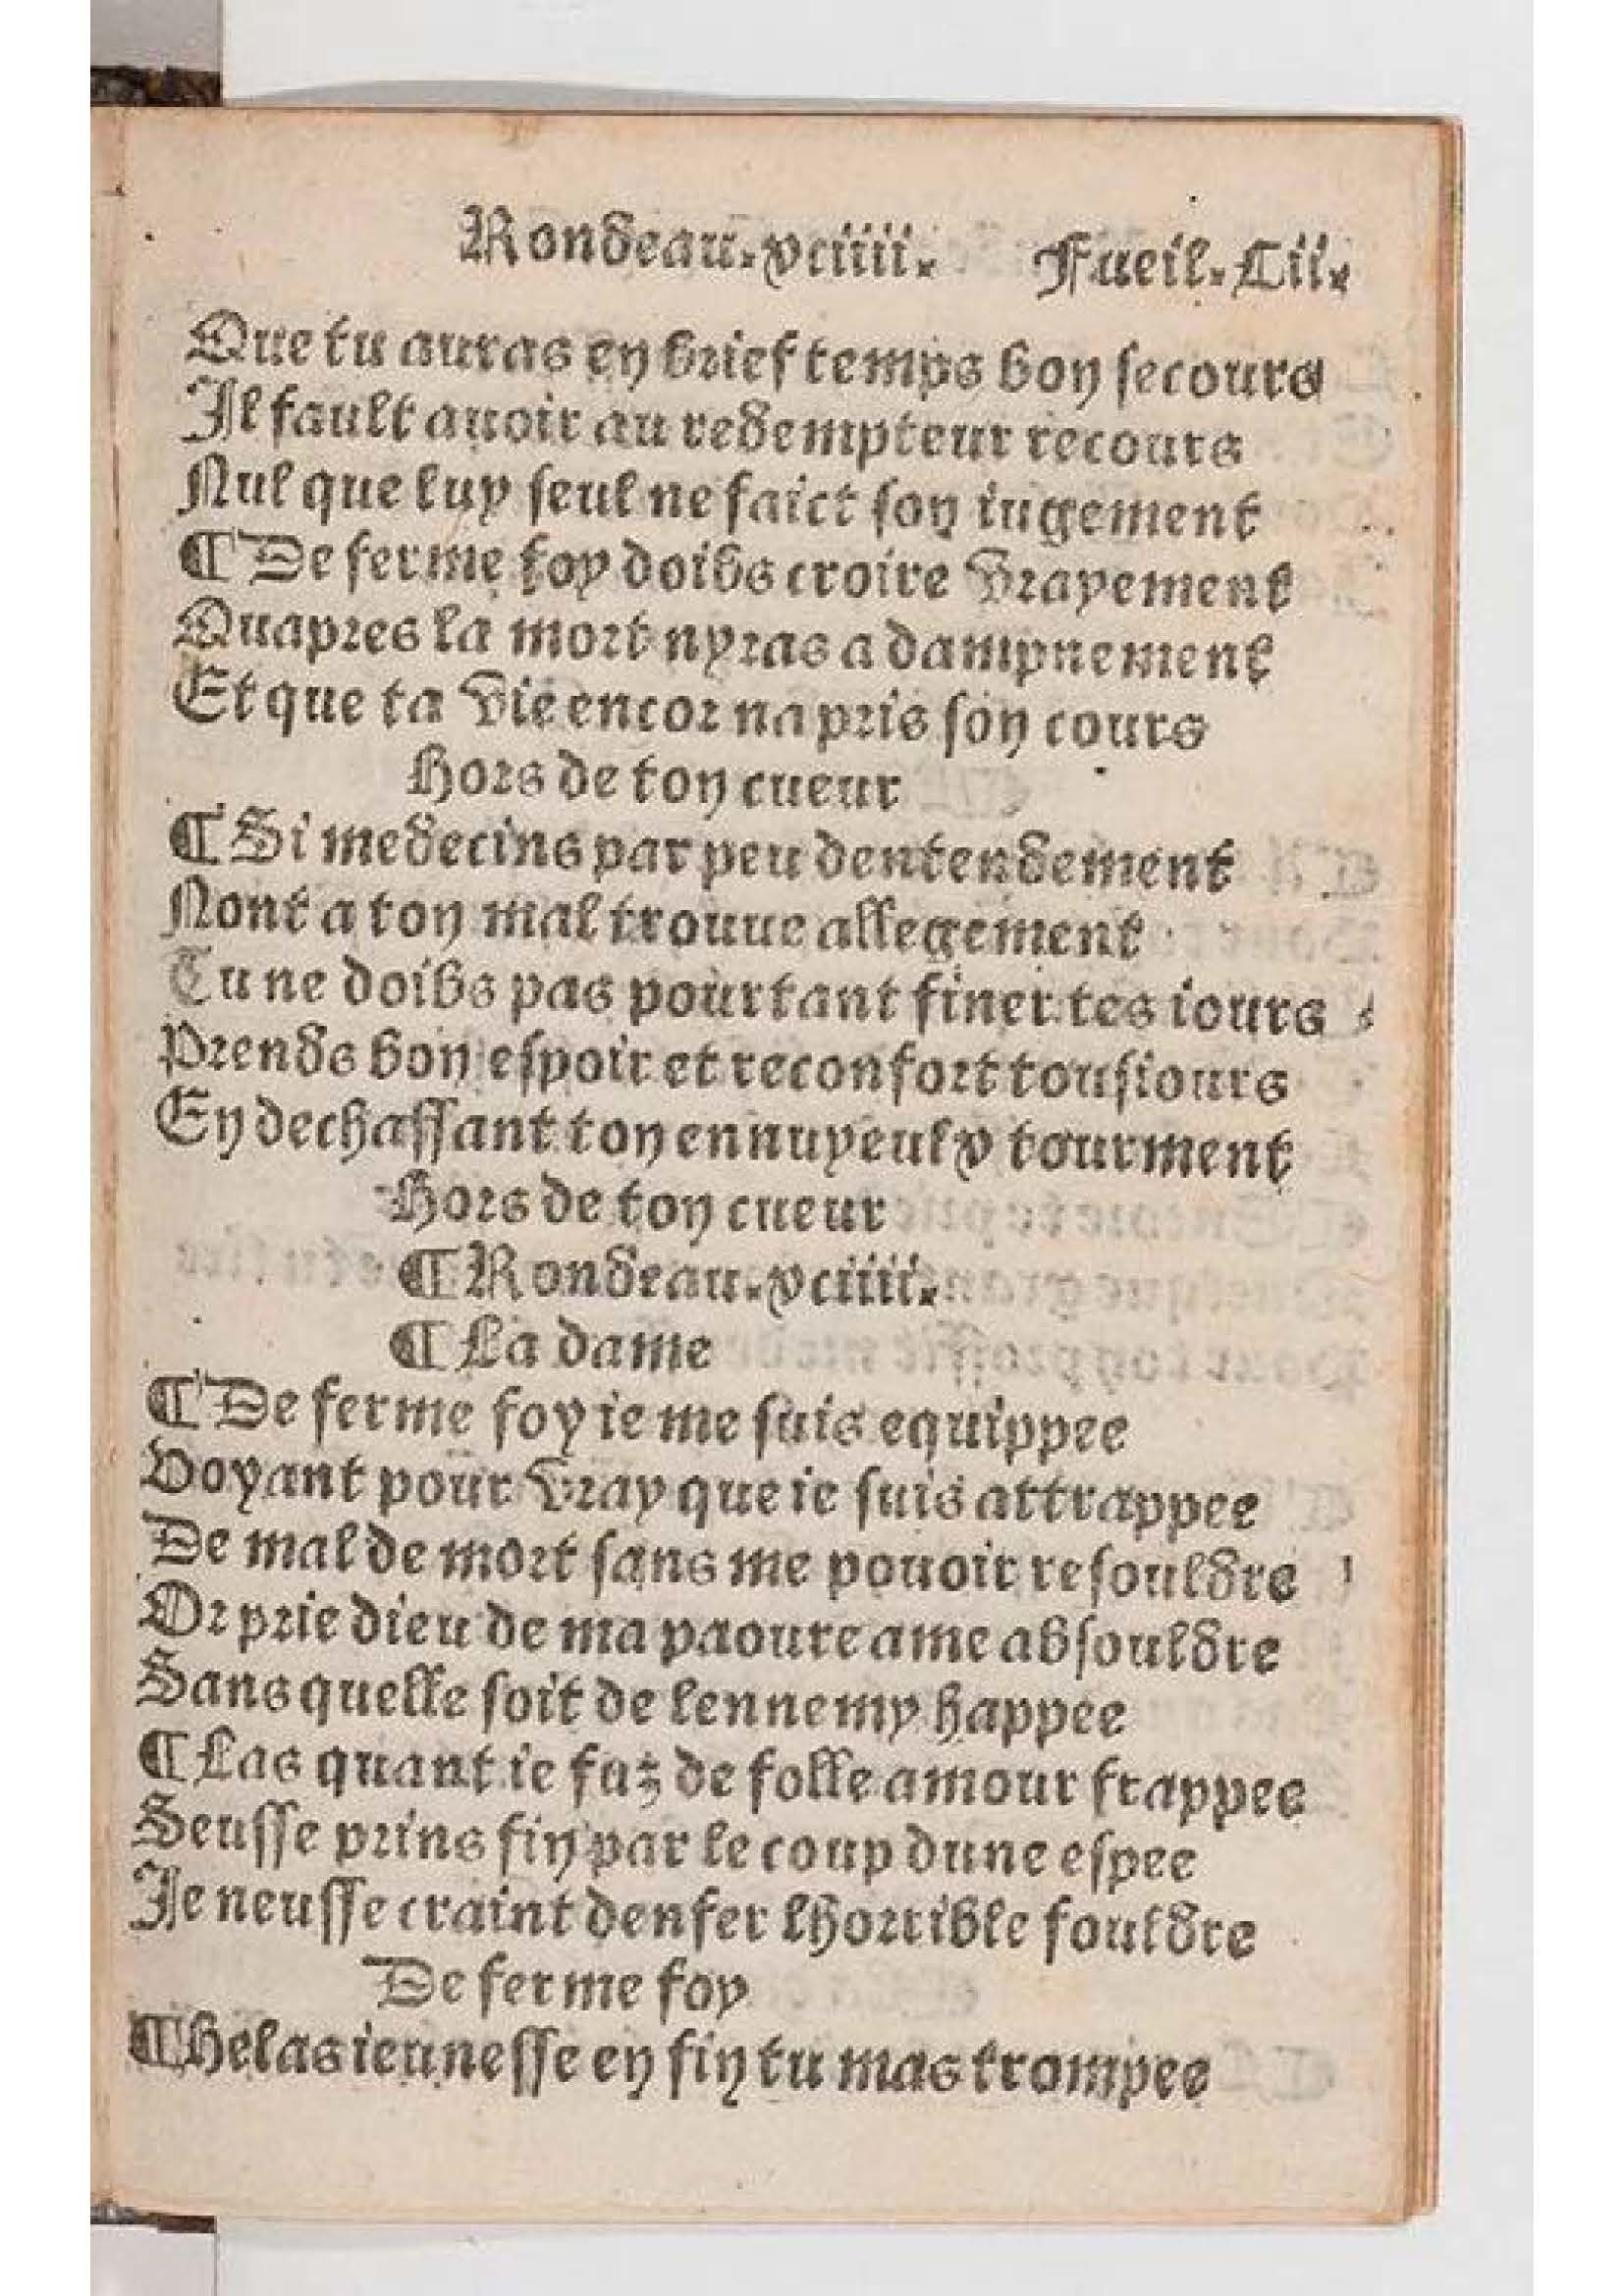 Rondeau.xciiii. Fueil.Cii.
Que tu auras en brief temps bon secours
Il fault auoir au redempteur recours
Nul que luy seul ne faict son iugement
¶ De ferme foy doibs croire vrayement
Quapres la mort nyras a dampnement
Et que ta vie encor na pris son cours
Hors de ton cueur
¶ Si medecins par peu dentendement
Nont a ton mal trouue allegement
Tu ne doibs pas pourtant finer tes iours
Prends bon espoir et reconfort tousiours
En dechassant ton ennuyeulx tourment
Hors de ton cueur
¶ Rondeau.xciiii.
¶ La dame
¶ De ferme foy ie me suis equippee
Voyant pour vray que ie suis attrappee
De mal de mort sans me pouoir resouldre
Or prie dieu de ma paoure ame absouldre
Sans quelle soit de lennemy happee
¶ Las quant ie fuz de folle amour frappee
Seusse prins fin par le coup dune espee
Je neusse craint denfer lhorrible fouldre
De ferme foy
¶ Helas ieunesse en fin tu mas trompee